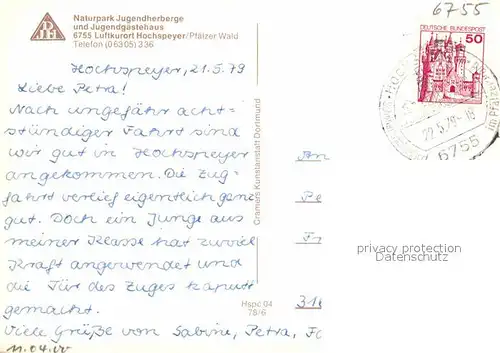 6755
Naturpark Jugendherberge
und Jugendgästehaus
6755 Luftkurort Hochspeyer/Pfälzer Wald
Telefon (06305) 336
DJH
DEUTSCHE BUNDESPOST
50
22.5.79-18
6755
Hochspeyer, 21.5.79
Liebe Petra!
Nach ungefähr acht-
stündiger Fahrt sind
wir gut in Hochspeyer
angekommen. Die Zug-
fahrt verlief eigentlich ganz
gut. Doch ein Junge aus
meiner Klasse hat zuviel
Kraft angewendet und
die Tür des Zuges kaputt
gemacht.
Viele Grüße von Sabine, Petra,
Cramers Kunstanstalt Dortmund
An
Pe
Fr
privacy protection
Datenschutz
Hspe 04
78/6
11.04.00